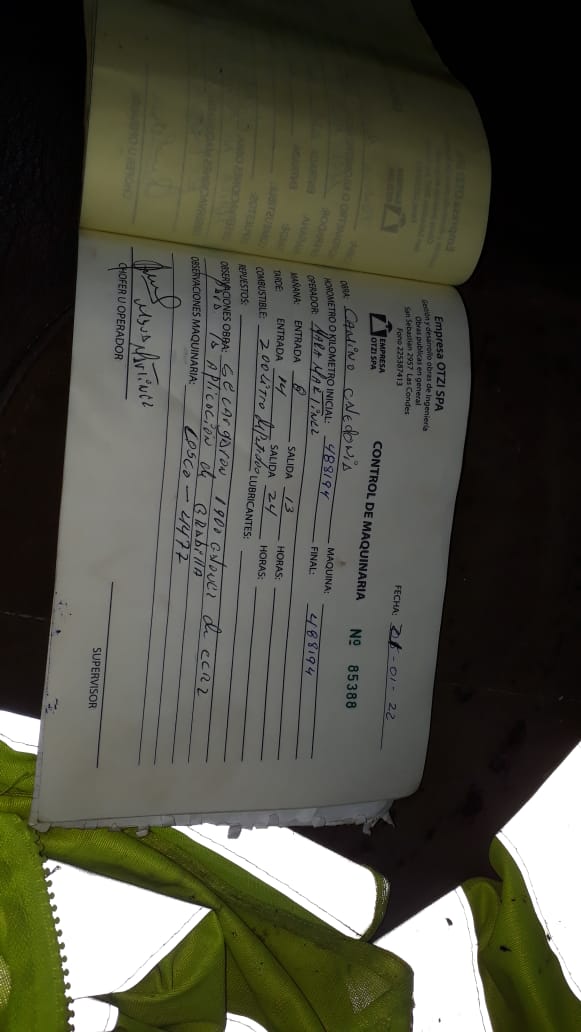 Empresa OTZI SPA
Gestión y desarrollo obras de Ingeniería
Obras publicas en general
San Sebastian 2957 Las Condes
Fono 225387413
EMPRESA
OTZI SPA
FECHA: 21-01-22
CONTROL DE MAQUINARIA Nº 85388
OBRA: CAMINO CALEDONIA MAQUINA:
HOROMETRO O KILOMETRO INICIAL: 488194 FINAL: 488194
OPERADOR: MARA MARTINEZ
MAÑANA: ENTRADA 8 SALIDA 13 HORAS:
TARDE: ENTRADA 14 SALIDA 24 HORAS:
COMBUSTIBLE: 200 Litro LUBRICANTES:
REPUESTOS:
OBSERVACIONES OBRA: SE CARGARON 1900 de
para la APLICACIÓN de GRABILLA
OBSERVACIONES MAQUINARIA: - 4477
MARA MARTINEZ
CHOFER U OPERADOR
SUPERVISOR